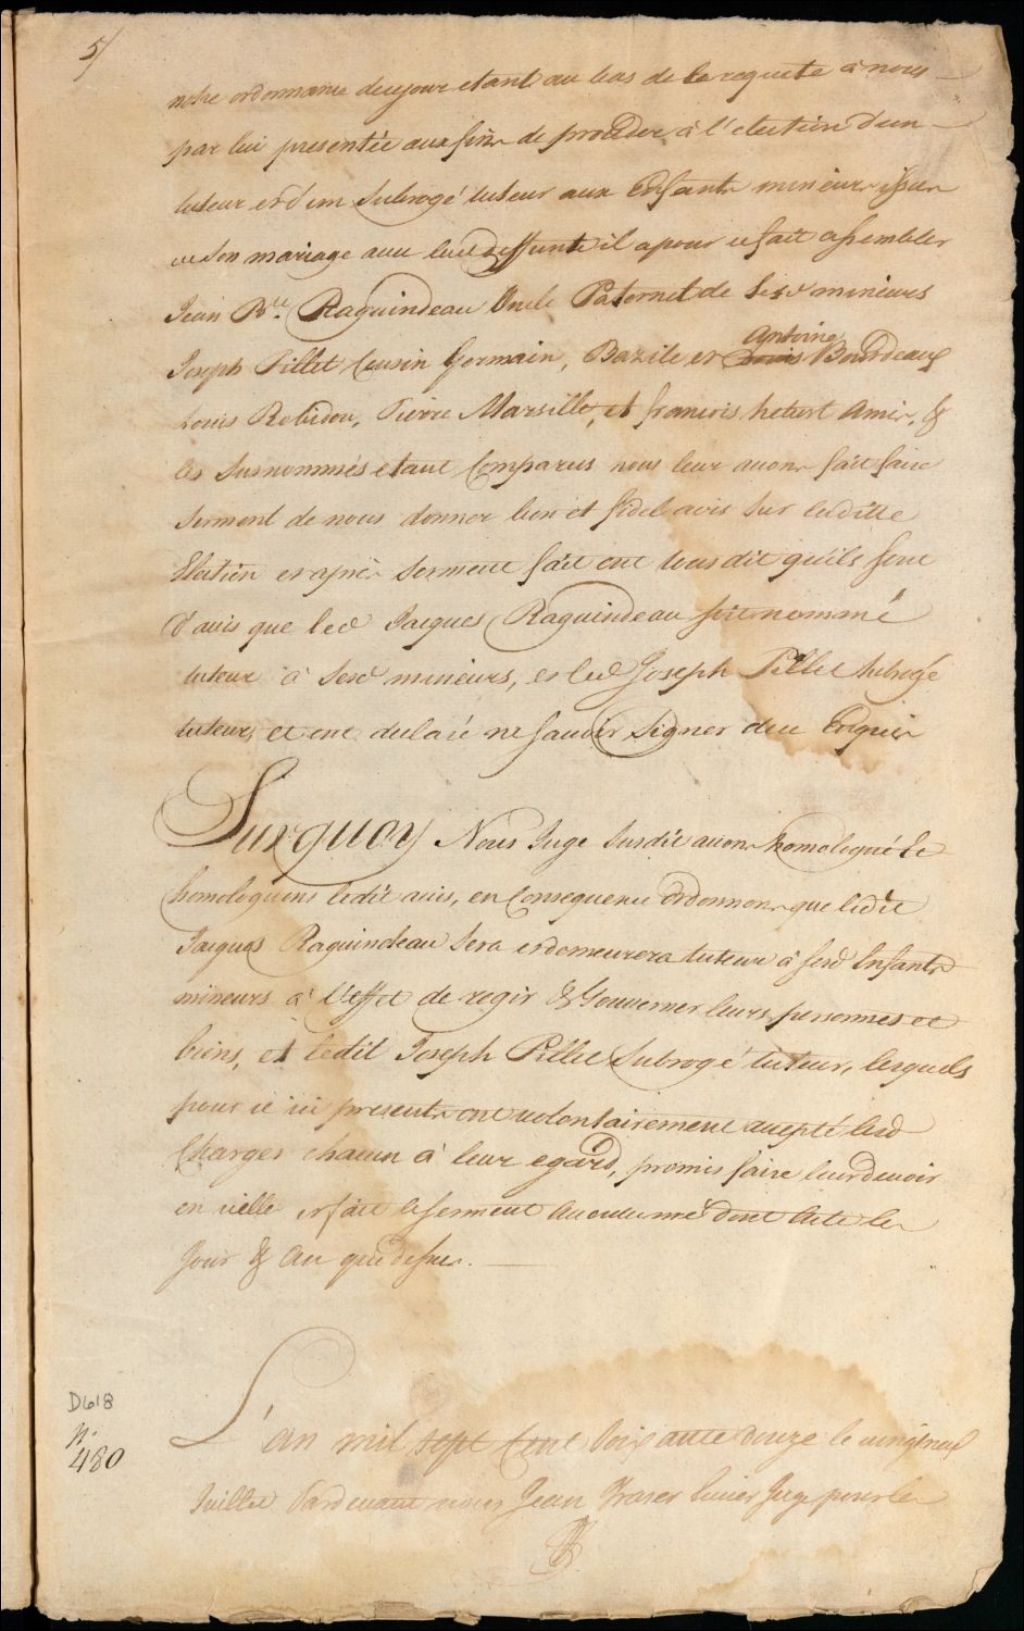 5/
notre ordonnance de ce jour etant au bas de la requete à nous
par lui presentée aux fins de proceder à l'election d'un
tuteur et d'un Subrogé tuteur aux Enfants mineurs issus
de son mariage avec lad deffunte il a pour ce fait assembler
Jean Bte. Raguindeau Oncle Paternel de sesd mineurs
Joseph Pillet Cousin Germain, Bazile et Antoine Bourdeaux
Louis Robidou, Pierre Marsille, et francois hebert Amis, &
les Surnommés etant Comparus nous leur avons fait faire
Serment de nous donner bon et fidel avis Sur laditte
Election et après Serment fait ont tous dit qu'ils sont
d'avis que led Jacques Raguindeau soit nommé
tuteur à sesd mineurs, et led Joseph Pillet Subrogé
tuteur, et ont declaré ne savoir Signer de ce Enquis
Surquoy Nous Juge Susdit avons homologué &
homologuons ledit avis, en Consequence Ordonnons que ledit
Jacques Raguindeau Sera et demeurera tuteur à sesd Enfants
mineurs à l'effet de regir & Gouverner leurs personnes et
biens, et ledit Joseph Pillet Subrogé tuteur, lesquels
pour ce ici presents ont volontairement accepté lesd
Charges chacun à leur egard, promis faire leur devoir
en icelle et fait le serment accoutumé dont Acte les
Jour & An que dessus.
D618
N.
480
L'an mil sept Cent Soixante douze le vingt neuf
Juillet Pardevant nous Jean Fraser Ecuier Juge pour les